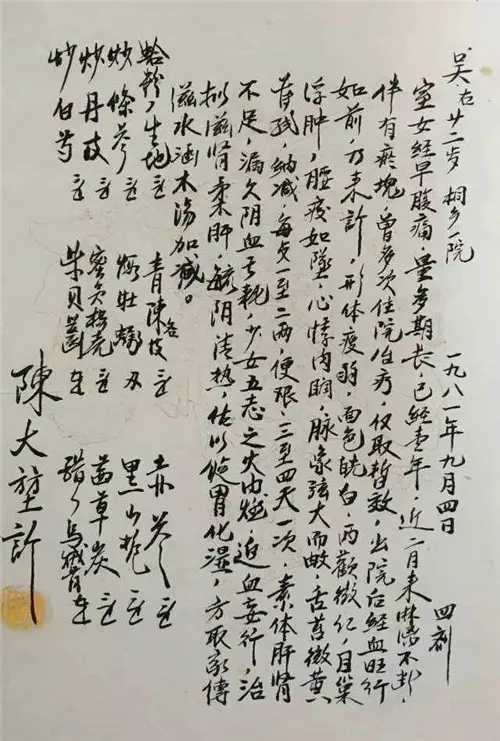 吴右 廿二岁 桐乡一院 一九八一年九月四日 四剂
室女经早腹痛,量多期长,已经壹年,近二月来淋漓不断,
伴有瘀块,曾多次住院治疗,仅取暂效,出院后经血旺行
如前,乃来诊,形体疲弱,面色㿠白,两颧微红,目窠
浮肿,腰痠如坠,心悸肉瞤,脉象弦大而芤,舌苔微黄
苔残,纳减,每贞一至二两,便艰,三至四天一次,素体肝肾
不足,漏久阴血亏耗,少女五志之火内燃,迫血妄行,治
拟滋肾柔肝,毓阴清热,佐以悦胃化湿,方取家传
滋水涵木汤加减。
蛤粉 生地 青陈皮各 太参
炒条参 煅牡蛎 黑山栀
炒丹皮 蜜炙椿壳 茜草炭
炒白芍 柴贝 醋 乌贼骨
陈大堃诊